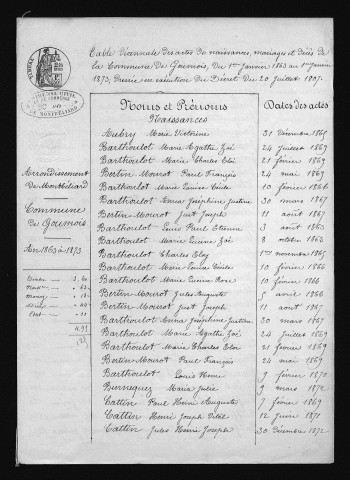 Table décennale des actes de naissances, mariages et décès de
la Commune de Goumois, Du 1er Janvier 1863 au 1er Janvier
1873, Dressée en exécution du Décret du 20 Juillet 1807.
Noms et Prénoms
Dates des actes
Naissances
Aubry Marie Victorine 31 Décembre 1865
Barthoulot Marie Agathe Zoé 24 Juillet 1869
Barthoulot Marie Charles Eloi 21 février 1869
Bertin-Mourot Paul François 24 mai 1869
Barthoulot Marie Louise Cécile 10 février 1866
Barthoulot Anna Joséphine Justine 30 mars 1867
Bertin-Mourot Just Joseph 11 août 1867
Barthoulot Louis Paul Etienne 3 août 1863
Barthoulot Marie Lucine Zoé 8 octobre 1863
Barthoulot Charles Eloy 1er novembre 1865
Barthoulot Marie Louise Cécile 10 février 1866
Barthoulot Marie Rose 10 février 1866
Bertin-Mourot Jules Auguste 5 avril 1866
Bertin-Mourot Just Joseph 11 août 1867
Barthoulot Anna Joséphine Justine 30 mars 1867
Barthoulot Marie Agathe Zoé 24 Juillet 1869
Barthoulot Marie Charles Eloi 21 février 1869
Bertin-Mourot Paul François 24 mai 1869
Barthoulot Louis 9 février 1870
Marie Julie 9 mars 1872
Cattin Paul Henri Auguste 7 février 1869
Cattin Henri Joseph 12 Juin 1871
Cattin Jules Henri Joseph 30 Décembre 1872
Arrondissement
de Montbéliard
Commune
de Goumois
An 1863 à 1873